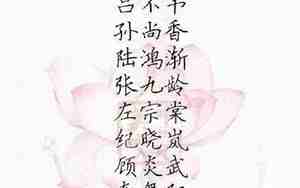 吕不韦
孙尚香
陆鸿渐
张九龄
左宗棠
纪晓岚
顾炎武